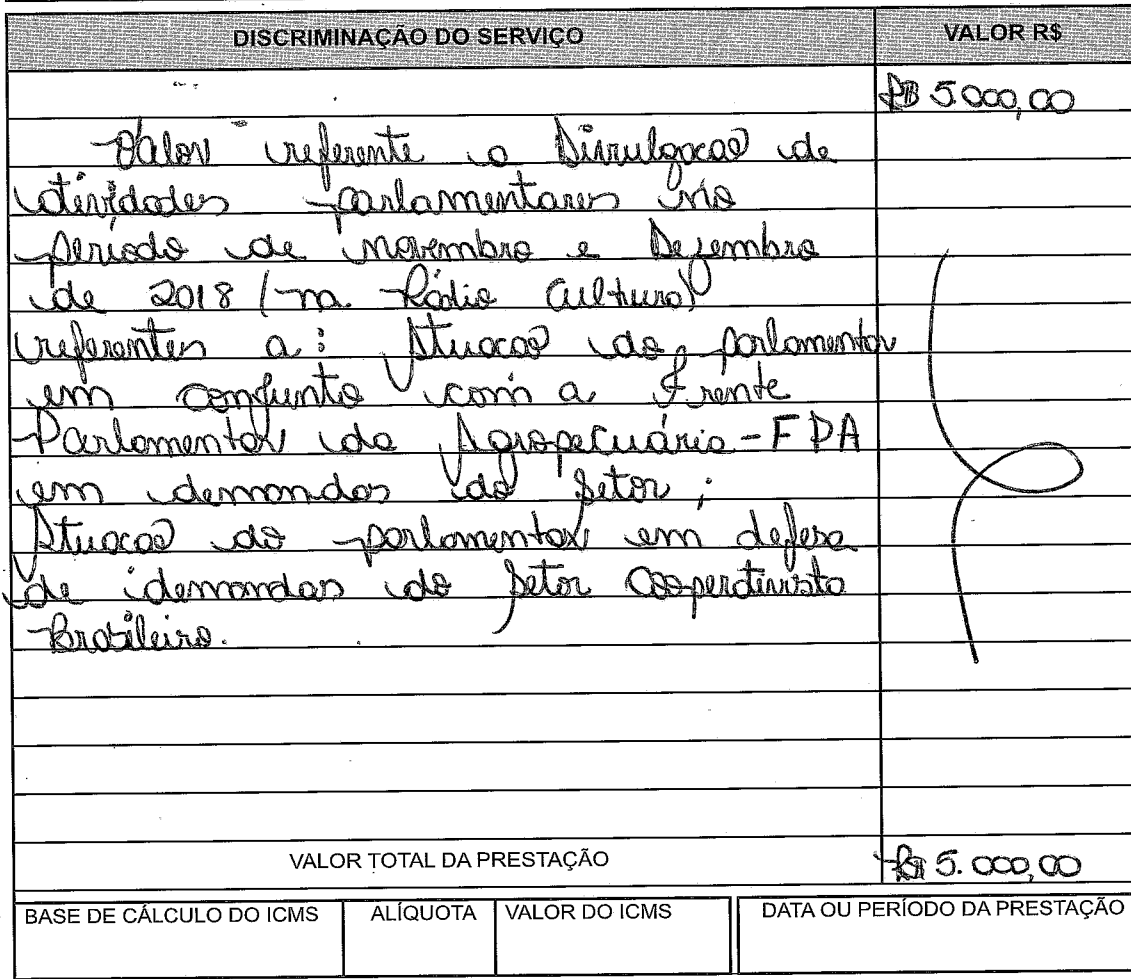 DISCRIMINAÇÃO DO SERVIÇO VALOR R$
R$ 5.000,00
Valor referente a Divulgacao de
atividades parlamentares no
período de novembro e Dezembro
de 2018 (na Rádio Cultura)
referentes a: Atuacao do parlamentar
em conjunto com a Frente
Parlamentar da Agropecuária - FPA
em demandas do Setor;
Atuacao do parlamentar em defesa
de demandas do Setor Cooperativista
Brasileiro.
VALOR TOTAL DA PRESTAÇÃO R$ 5.000,00
BASE DE CÁLCULO DO ICMS ALÍQUOTA VALOR DO ICMS DATA OU PERÍODO DA PRESTAÇÃO